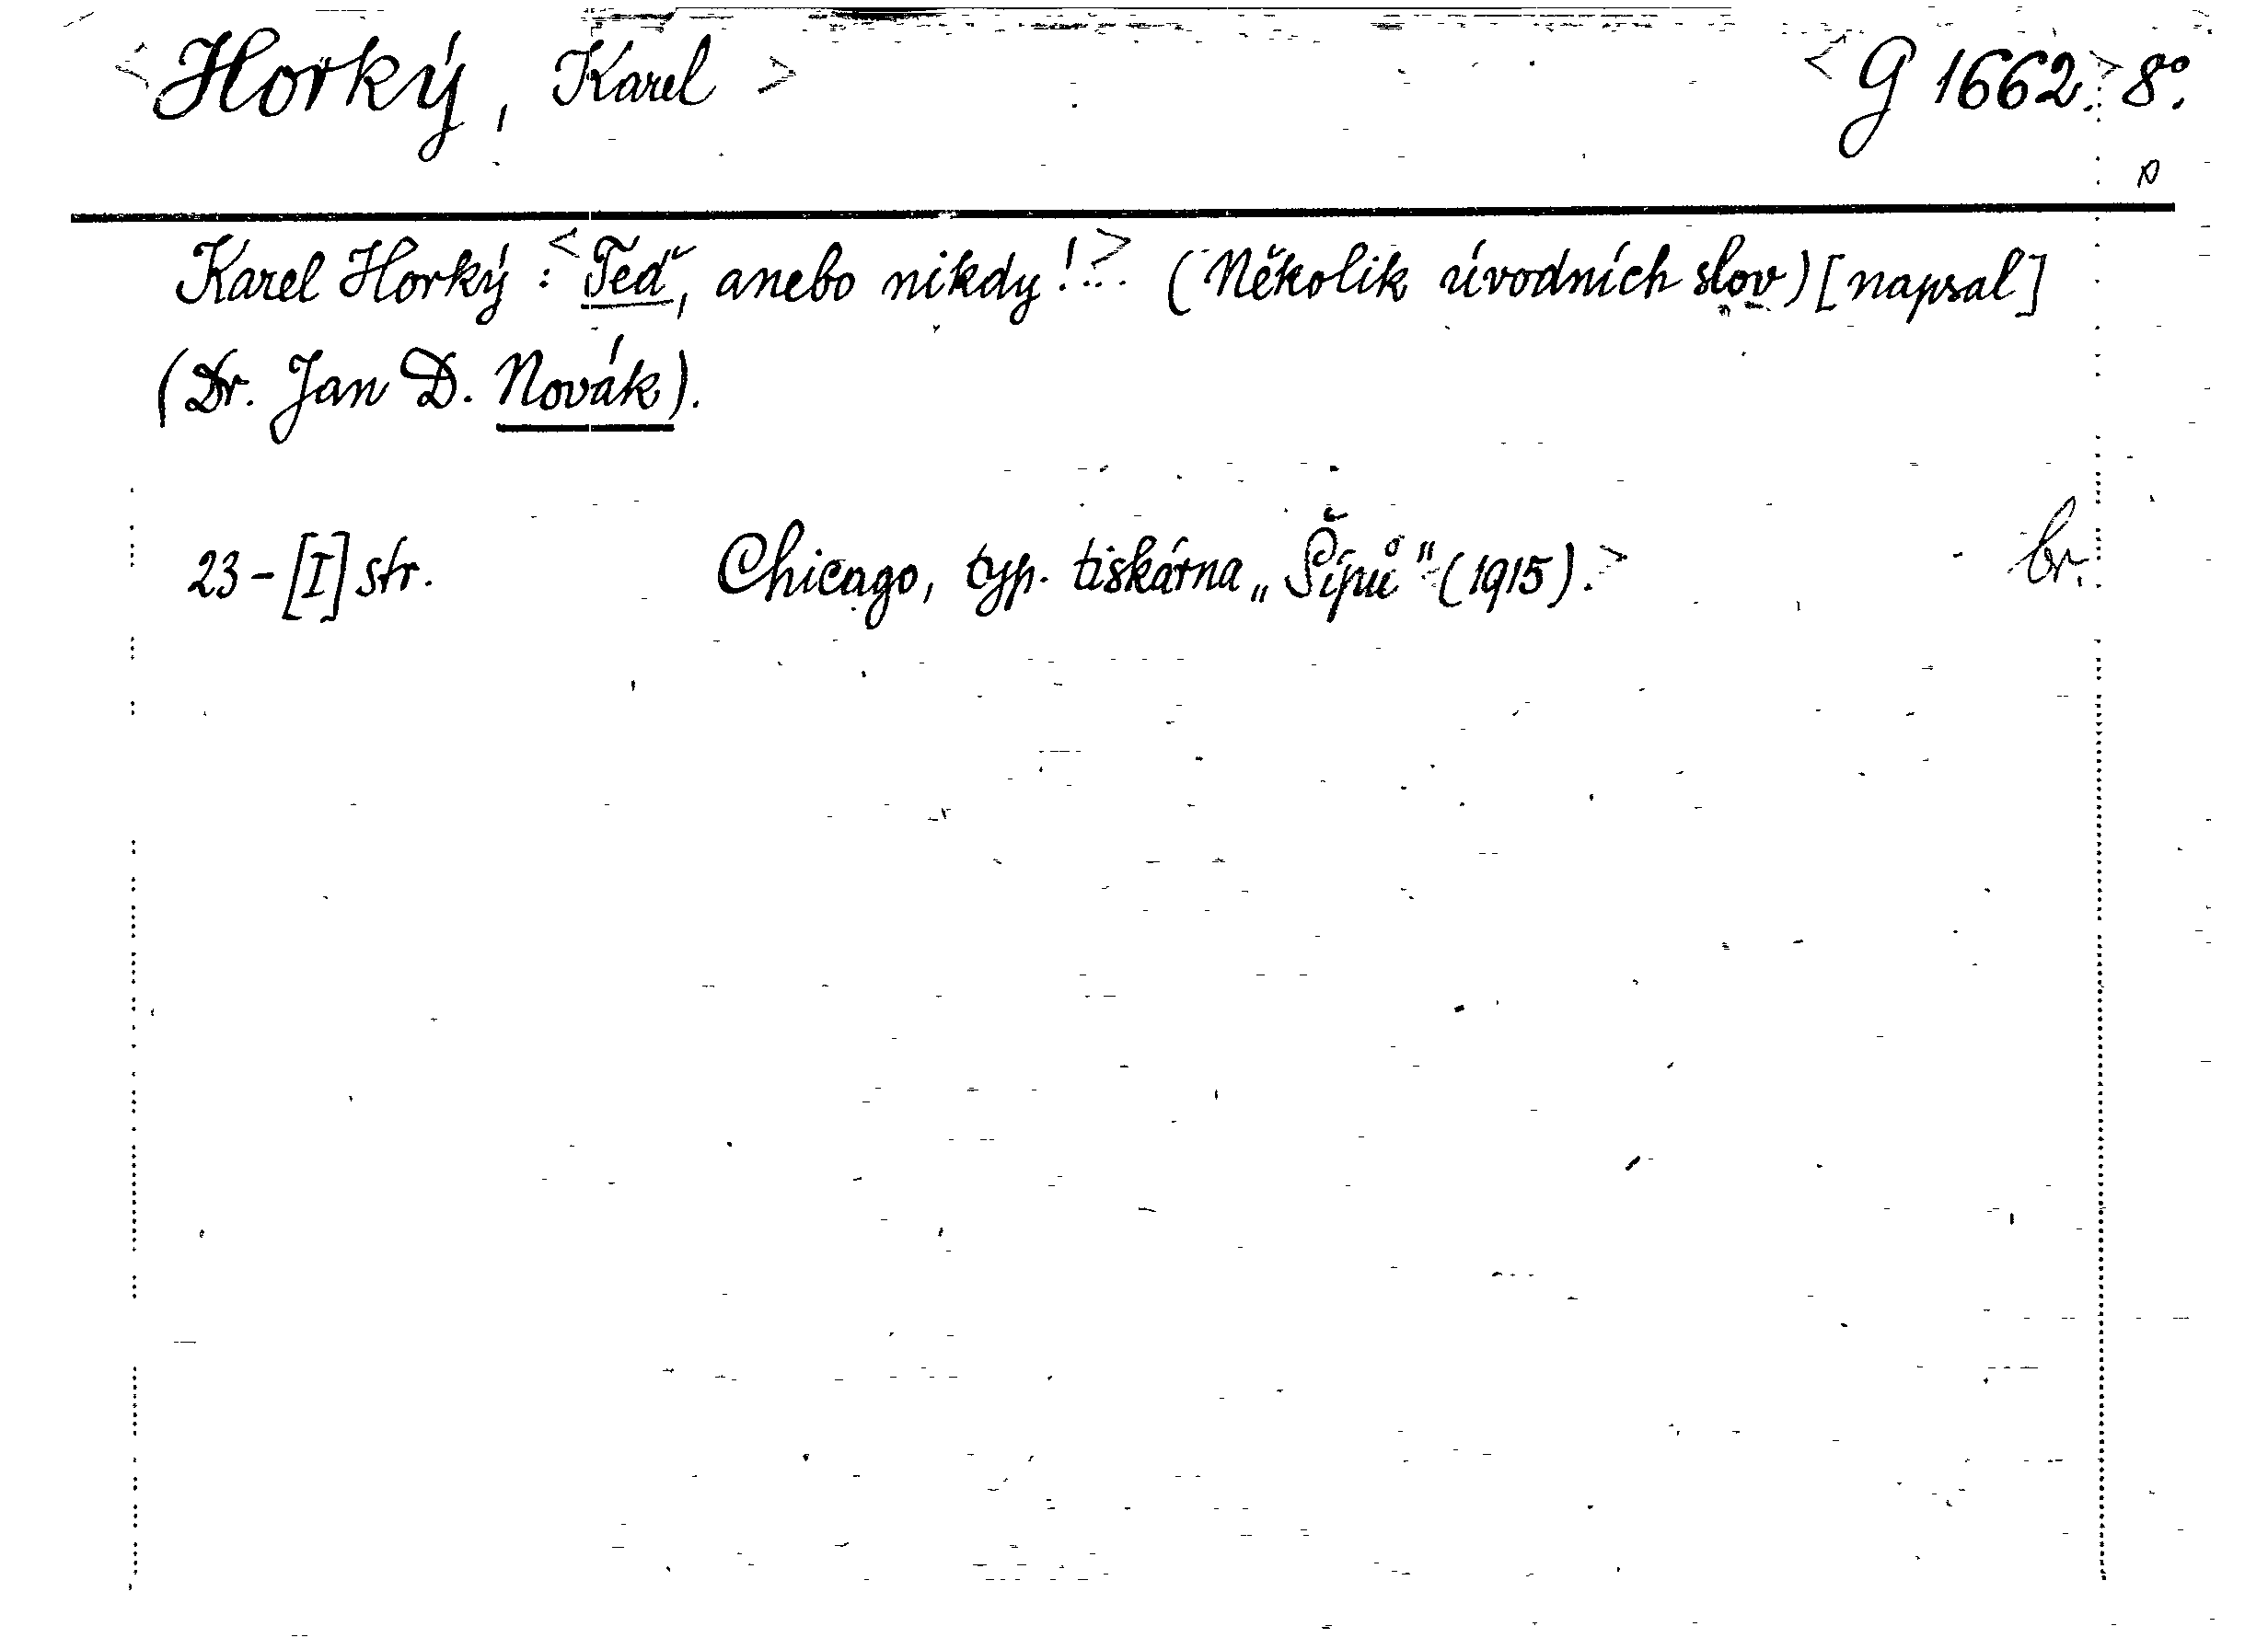 <Horký, Karel> <G 1662.> 8°.
Karel Horký: <Teď, anebo nikdy!..> (Několik úvodních slov) [napsal]
(Dr. Jan D. Novák).
23-[I] str. Chicago, typ. tiskárna „Šípů" (1915).> br.